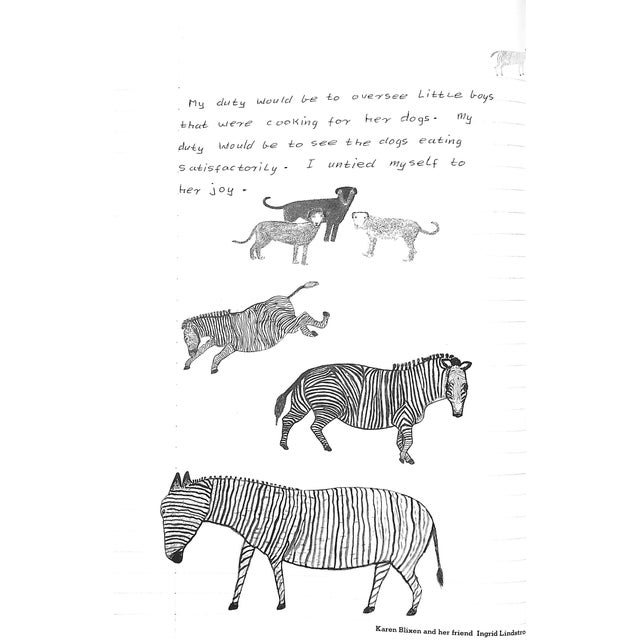 My duty would be to oversee little boys
that were cooking for her dogs. My
duty would be to see the dogs eating
satisfactorily. I untied myself to
her joy.
Karen Blixen and her friend Ingrid Lindstro